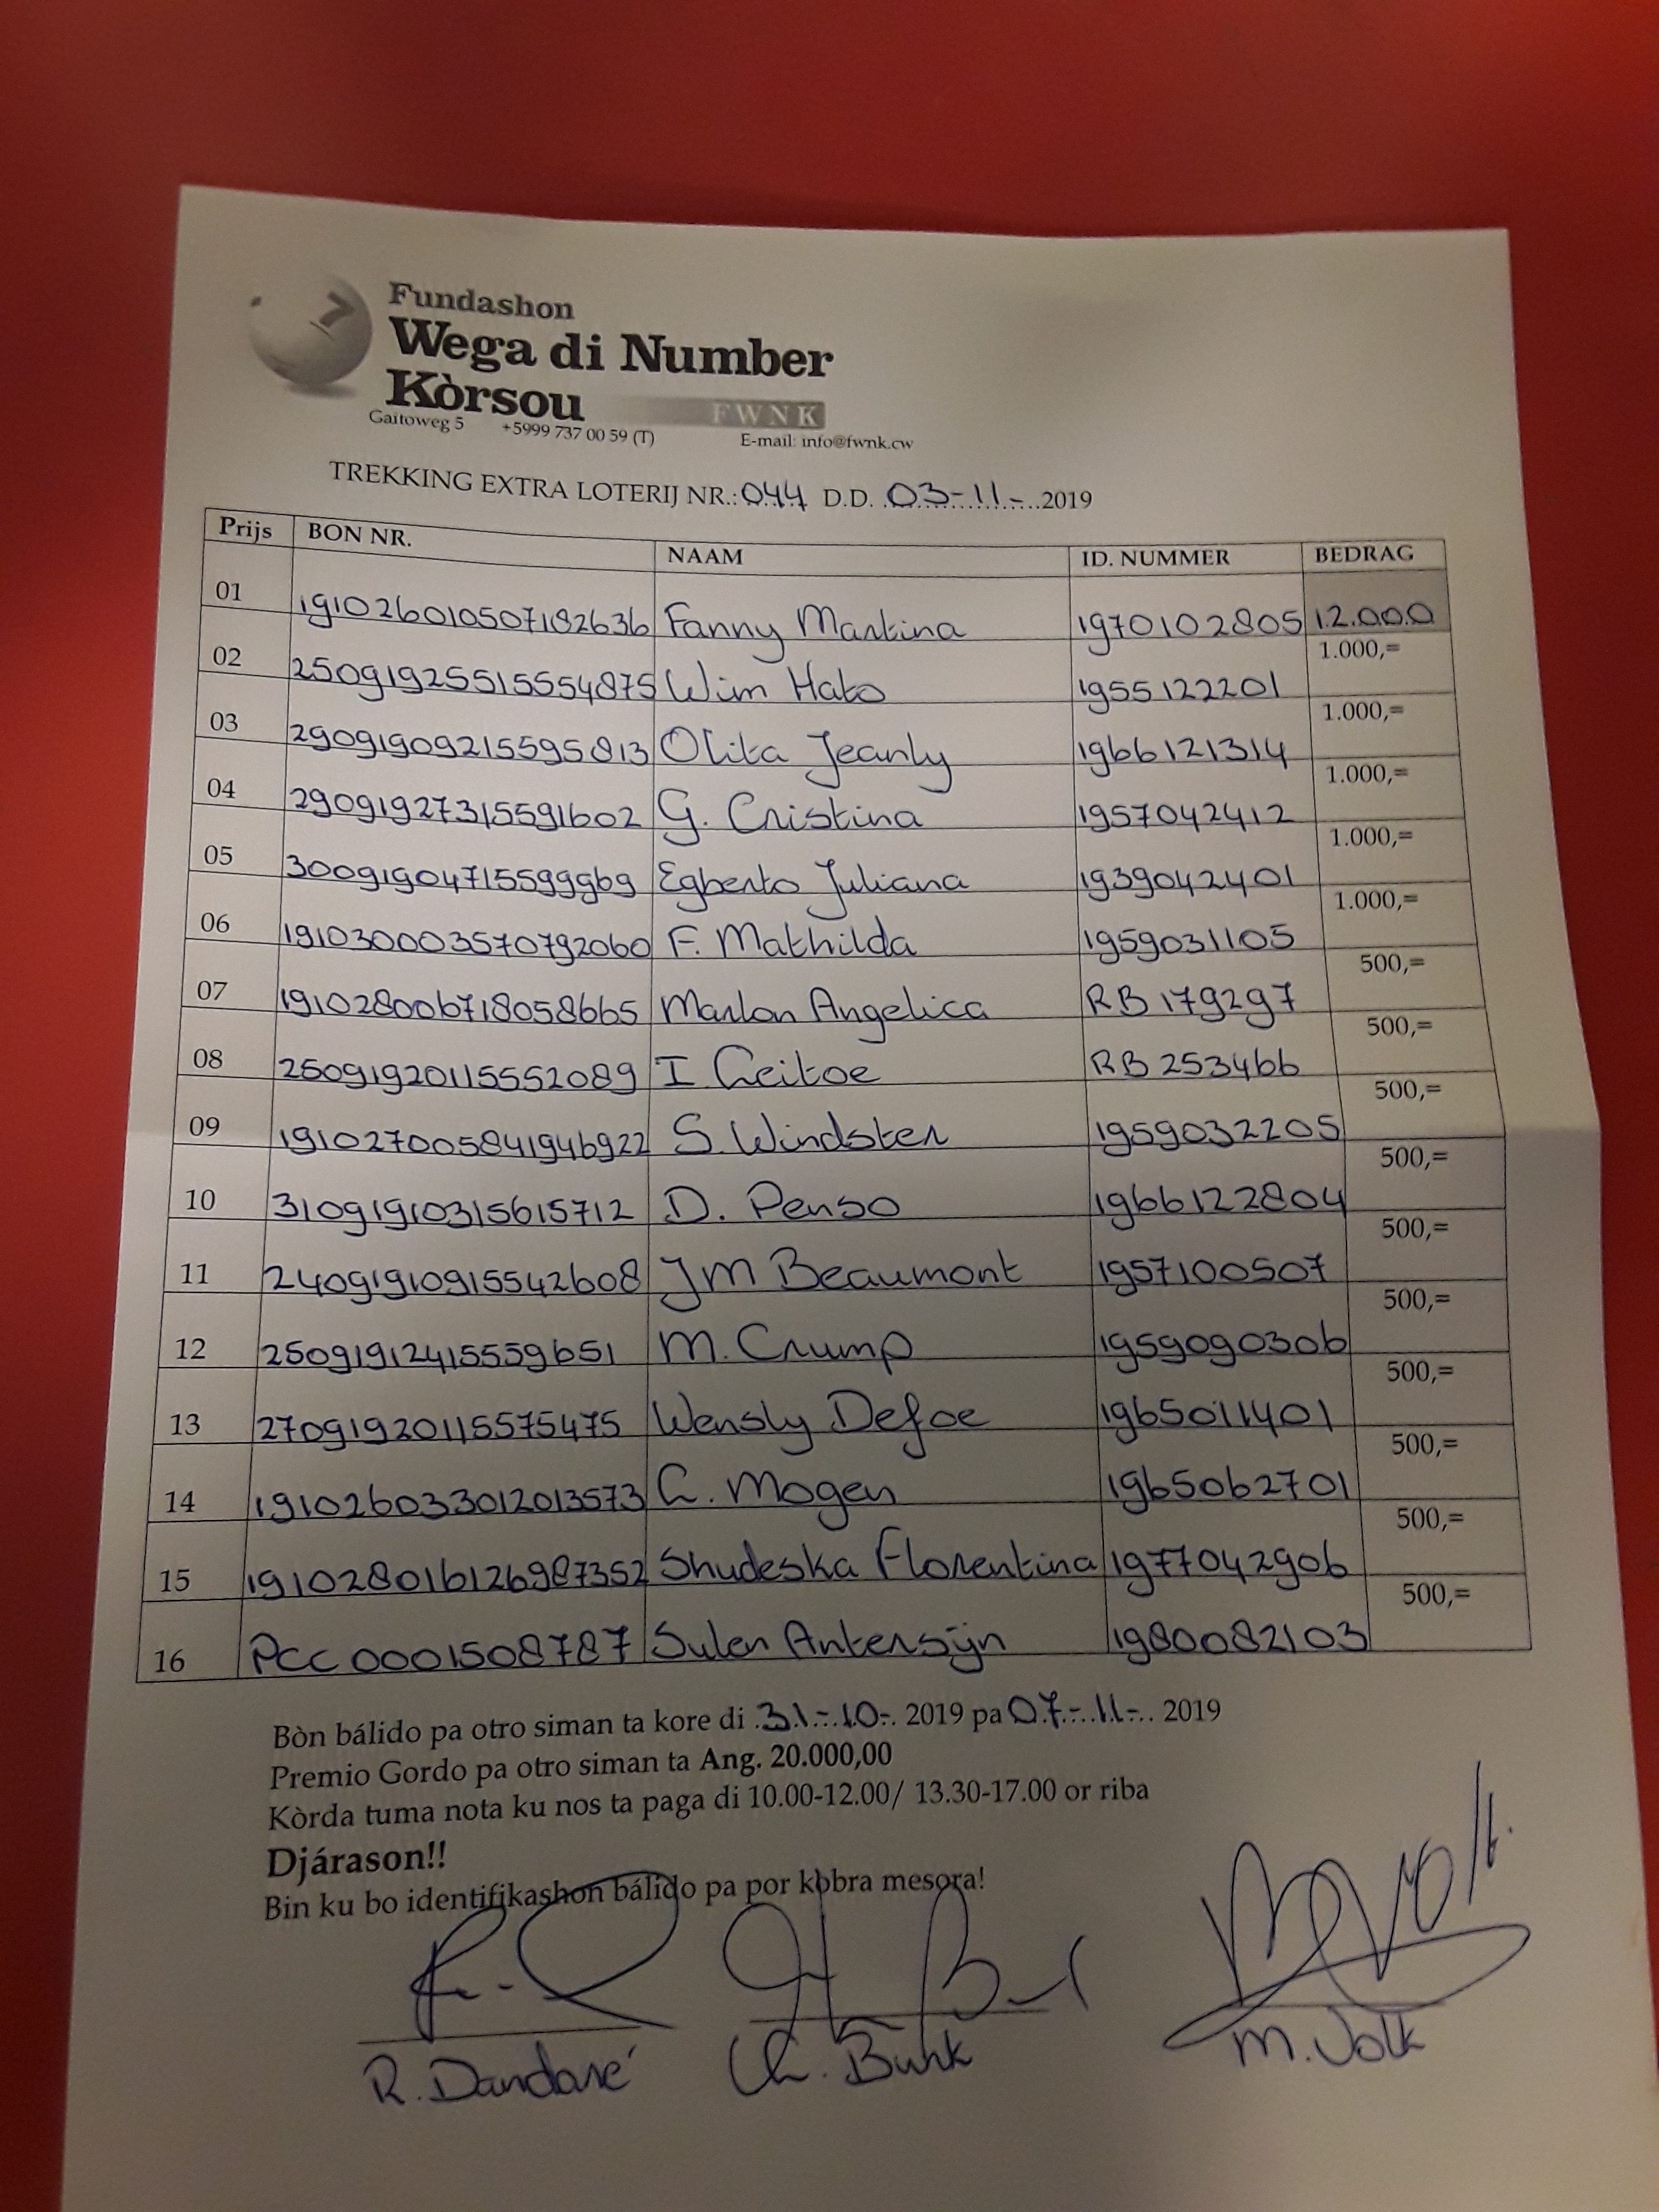 7
Fundashon
Wega di Number
Kòrsou
FWNK
Gaitoweg 5 +5999 737 00 59 (T) E-mail: info@fwnk.cw
TREKKING EXTRA LOTERIJ NR.: 044 D.D. 03-11-.2019
Prijs BON NR. NAAM ID. NUMMER BEDRAG
01 19102601050718263б Fanny Martina 1970102805 12.000
02 250919255155548 75 Wim Hato 1955122201 1.000,=
03 29091909215595813 Olita Jeanly 1966121314 1.000,=
04 29091927315591602 G. Cristina 1957042412 1.000,=
05 30091904715599969 Egberto Juliana 1939042401 1.000,=
06 1910300035707920 60 F. Mathilda 1959031105 1.000,=
07 191028006718058665 Marlon Angelica RB 179297 500,=
08 250919201155520 89 I Ceitoe RB 253466 500,=
09 191027005841946922 S. Windster 1959032205 500,=
10 310919103156157 12 D. Penso 1966122804 500,=
11 240919109155426 08 JM Beaumont 1957100507 500,=
12 250919124155596 51 M. Crump 1959090306 500,=
13 270919201155754 75 Wensly Defoe 1965011401 500,=
14 191026033012013573 C. Mogen 1965062701 500,=
15 191028016126987352 Shudeska Florentina 1977042906 500,=
16 PCC 0001508787 Sulen Antersijn 1980082103 500,=
Bòn bálido pa otro siman ta kore di 31-10-. 2019 pa 07-11-.. 2019
Premio Gordo pa otro siman ta Ang. 20.000,00
Kòrda tuma nota ku nos ta paga di 10.00-12.00/ 13.30-17.00 or riba
Djárason!!
Bin ku bo identifikashon bálido pa por kobra mesora!
R. Dandaré M. Volk